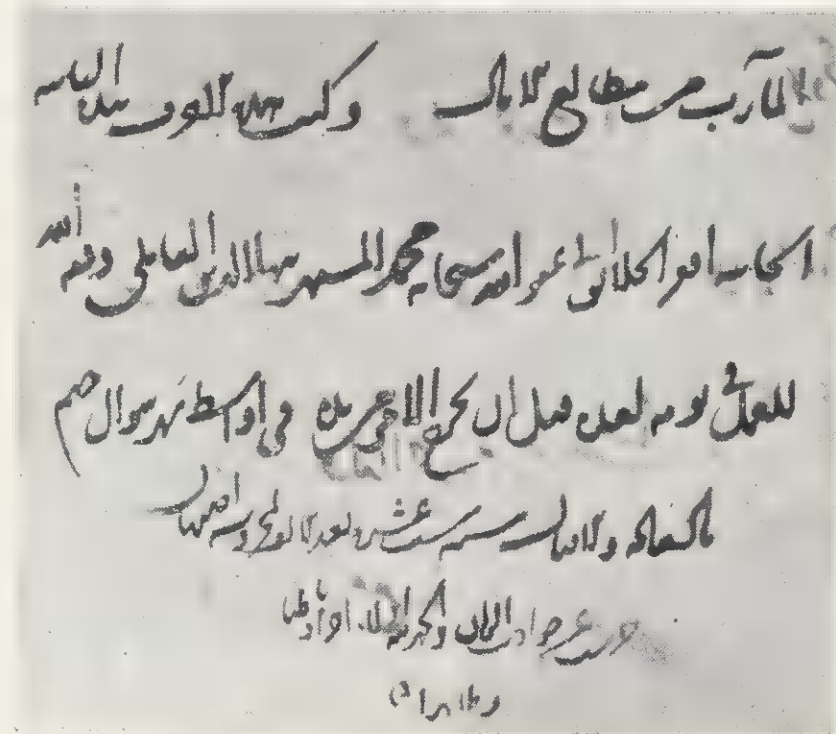 المآرب من مطالع الاماني وكتب هذه الاحرف بيده الفانية
الجانية افقر الخلائق الى عفو الله سبحانه محمد المشتهر ببهاء الدين العاملي وفقه الله
للعمل في يومه لغده قبل ان يخرج الامر من يده في اواسط شهر شوال ختم
بالسعادة والاقبال سنة ست عشر بعد الالف بمحروسة اصفهان
حرست عن حوادث الزمان والحمد لله اولا وآخرا
وظاهرا